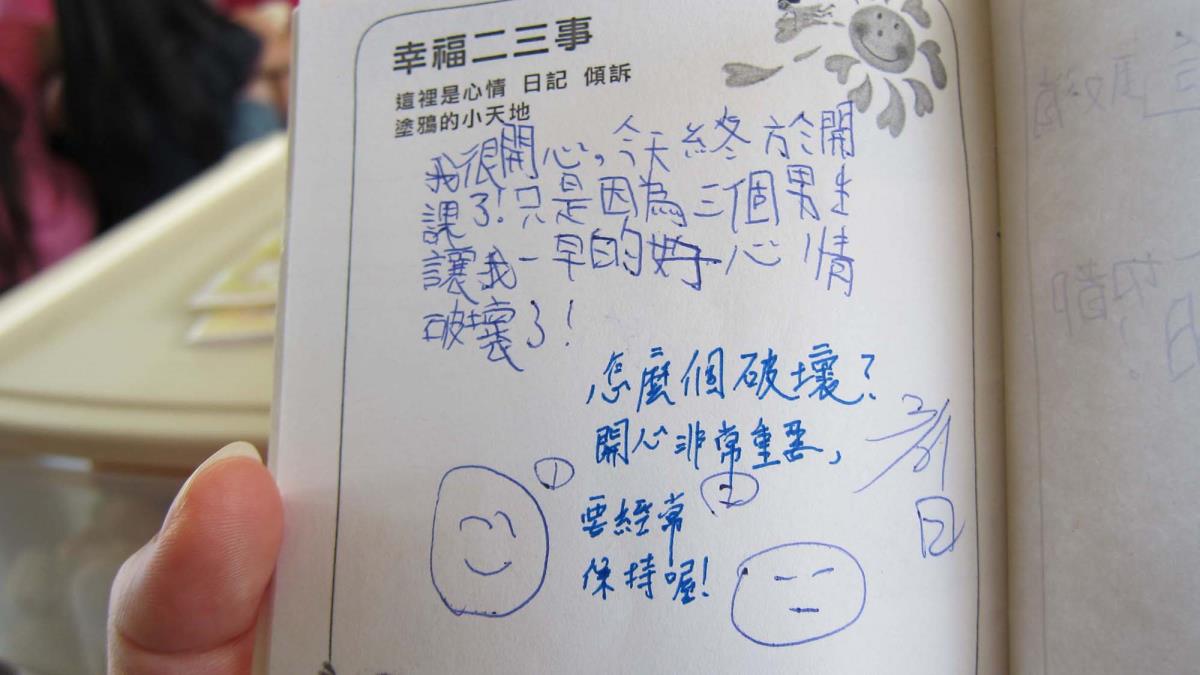 幸福二三事
這裡是心情 日記 傾訴
塗鴉的小天地
我很開心。今天終於開
課了!只是因為三個男生
讓我一早的好心情
破壞了!
怎麼個破壞?
開心非常重要,
①
②
要經常
保持喔!